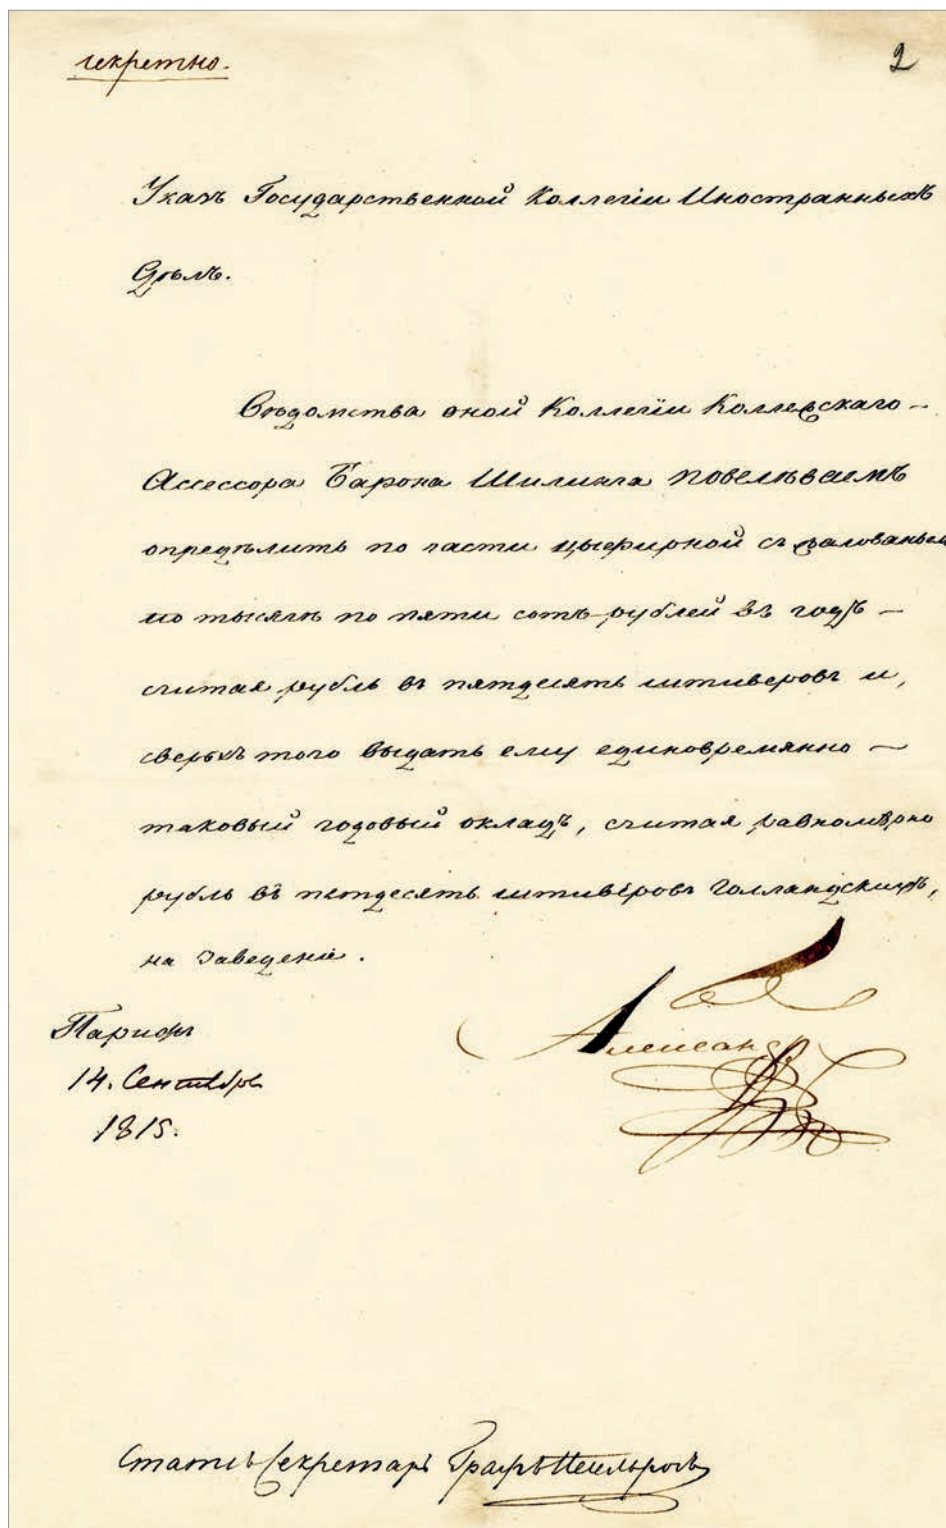 секретно.
2
Указъ Государственной Коллегіи Иностранныхъ
Дѣлъ.
Вѣдомства оной Коллегіи Коллежскаго –
Ассессора Барона Шилинга повелѣваемъ
опредѣлить по части цыфирной съ жалованьемъ
по тысячѣ по пяти сотъ рублей въ годъ –
считая рубль въ пятдесять штиверовъ и,
сверьхъ того выдать ему единовремянно –
таковый годовый окладъ, считая равномѣрно
рубль въ пятдесять штиверовъ Голландскихъ,
на заведеніе.
Александръ
Парижъ
14. Сентября
1815.
Статсъ Секретарь Графъ Нессельродъ